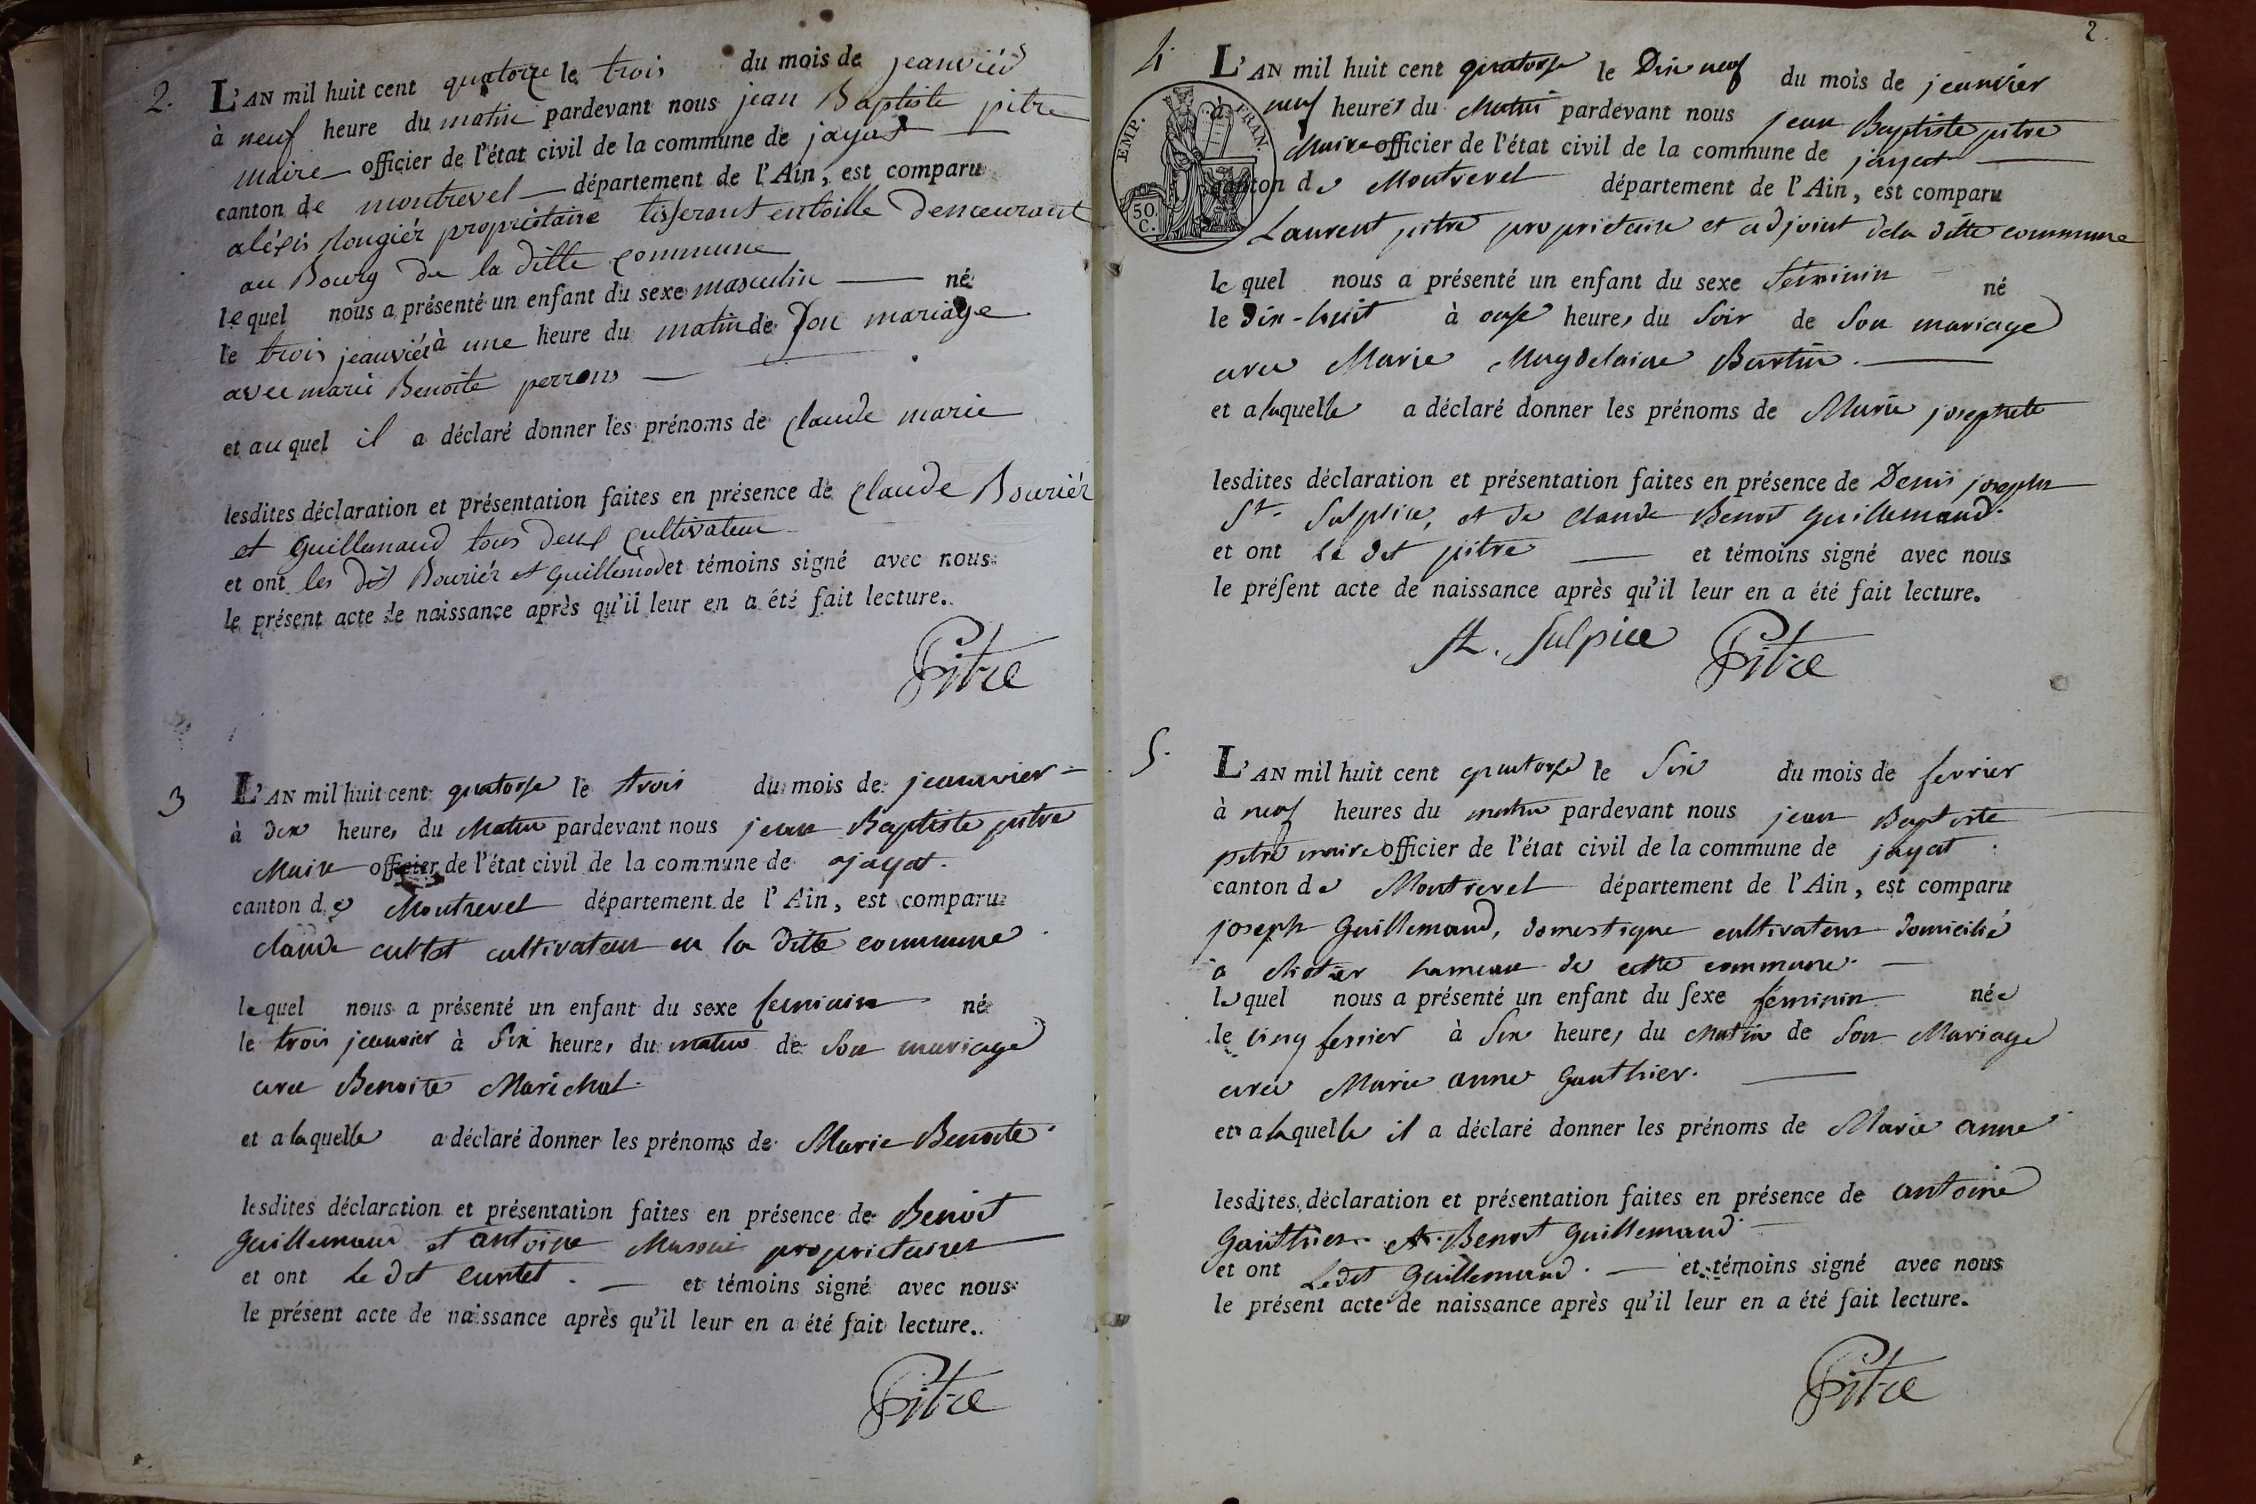 2.
L'AN mil huit cent quatorze le trois du mois de jeanviér
à neuf heure du matin pardevant nous jean Baptiste pitre
maire officier de l'état civil de la commune de jayat
canton de montrevel département de l'Ain, est comparu
aléxis rougiér propriétaire tisserant en toille demeurant
au Bourg de la ditte commune
lequel nous a présenté un enfant du sexe masculin né
le trois jeanviér à une heure du matin de son mariage
avec marie Benoite perron
et au quel il a déclaré donner les prénoms de claude marie
lesdites déclaration et présentation faites en présence de claude Bouriér
et Guillemaud tous deux cultivateur
et ont les dit Bouriér et Guillemod et témoins signé avec nous
le présent acte de naissance après qu'il leur en a été fait lecture.
Pitre
3
L'AN mil huit cent quatorse le trois du mois de jeanvier
à dix heures du Matin pardevant nous jean Baptiste pitre
Maire officier de l'état civil de la commune de jayat.
canton de Montrevel département de l'Ain, est comparu
claude cultet cultivateur en la ditte commune
lequel nous a présenté un enfant du sexe feminin né
le trois jeanvier à six heures du matin de son mariage
avec Benoite Maréchal.
et a laquelle a déclaré donner les prénoms de Marie Benoite.
lesdites déclaration et présentation faites en présence de Benoit
Guillemaud et antoine propriétaires
et ont le dit curtet. et témoins signé avec nous
le présent acte de naissance après qu'il leur en a été fait lecture.
Pitre
2.
4
EMP. FRAN.
50 C.
L'AN mil huit cent quatorse le Dix neuf du mois de jeanvier
à neuf heures du Matin pardevant nous jean Baptiste pitre
Maire officier de l'état civil de la commune de jayat
canton de Montrevel département de l'Ain, est comparu
Laurent pitre propriétaire et adjoint dela ditte commune
lequel nous a présenté un enfant du sexe feminin né
le dix-huit à onse heures du soir de son mariage
avec Marie Magdelaine Burtin.
et a laquelle a déclaré donner les prénoms de Marie josephete
lesdites déclaration et présentation faites en présence de Denis joseph
St. Sulpice, et de claude Benoit Guillemaud.
et ont le dit pitre et témoins signé avec nous
le présent acte de naissance après qu'il leur en a été fait lecture.
St. Sulpice Pitre
5.
L'AN mil huit cent quatorze le six du mois de fevrier
à neuf heures du matin pardevant nous jean Baptiste
pitre maire officier de l'état civil de la commune de jayat.
canton de Montrevel département de l'Ain, est comparu
joseph Guillemaud, domestique cultivateur domicilié
à hameau de cette commune.
lequel nous a présenté un enfant du sexe féminin née
le cinq fevrier à six heures du Matin de son Mariage
avec Marie anne Gauthier.
et a laquelle il a déclaré donner les prénoms de Marie anne
lesdites déclaration et présentation faites en présence de antoine
Gauthier et Benoit Guillemaud.
et ont Ledit Guillemaud. et témoins signé avec nous
le présent acte de naissance après qu'il leur en a été fait lecture.
Pitre